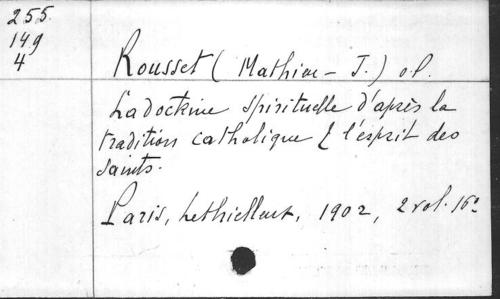 255.
149
4
Rousset (Mathieu - J.) o.p.
La doctrine spirituelle d'après la
tradition catholique & l'esprit des
saints.
Paris, Lethielleux, 1902, 2 vol. 16º